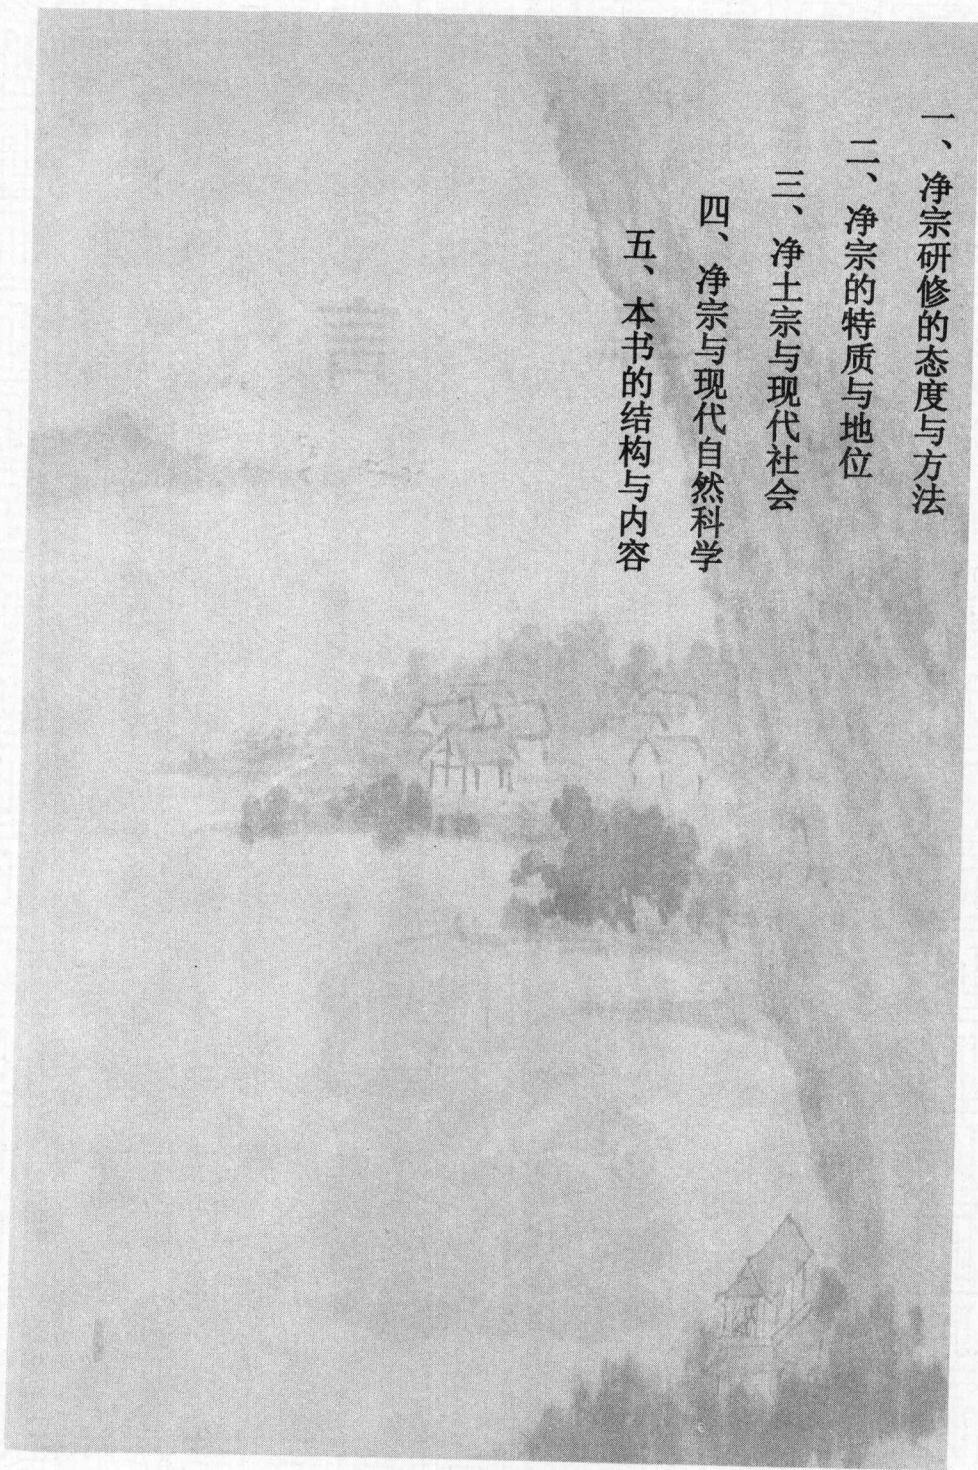 一、净宗研修的态度与方法
二、净宗的特质与地位
三、净土宗与现代社会
四、净宗与现代自然科学
五、本书的结构与内容